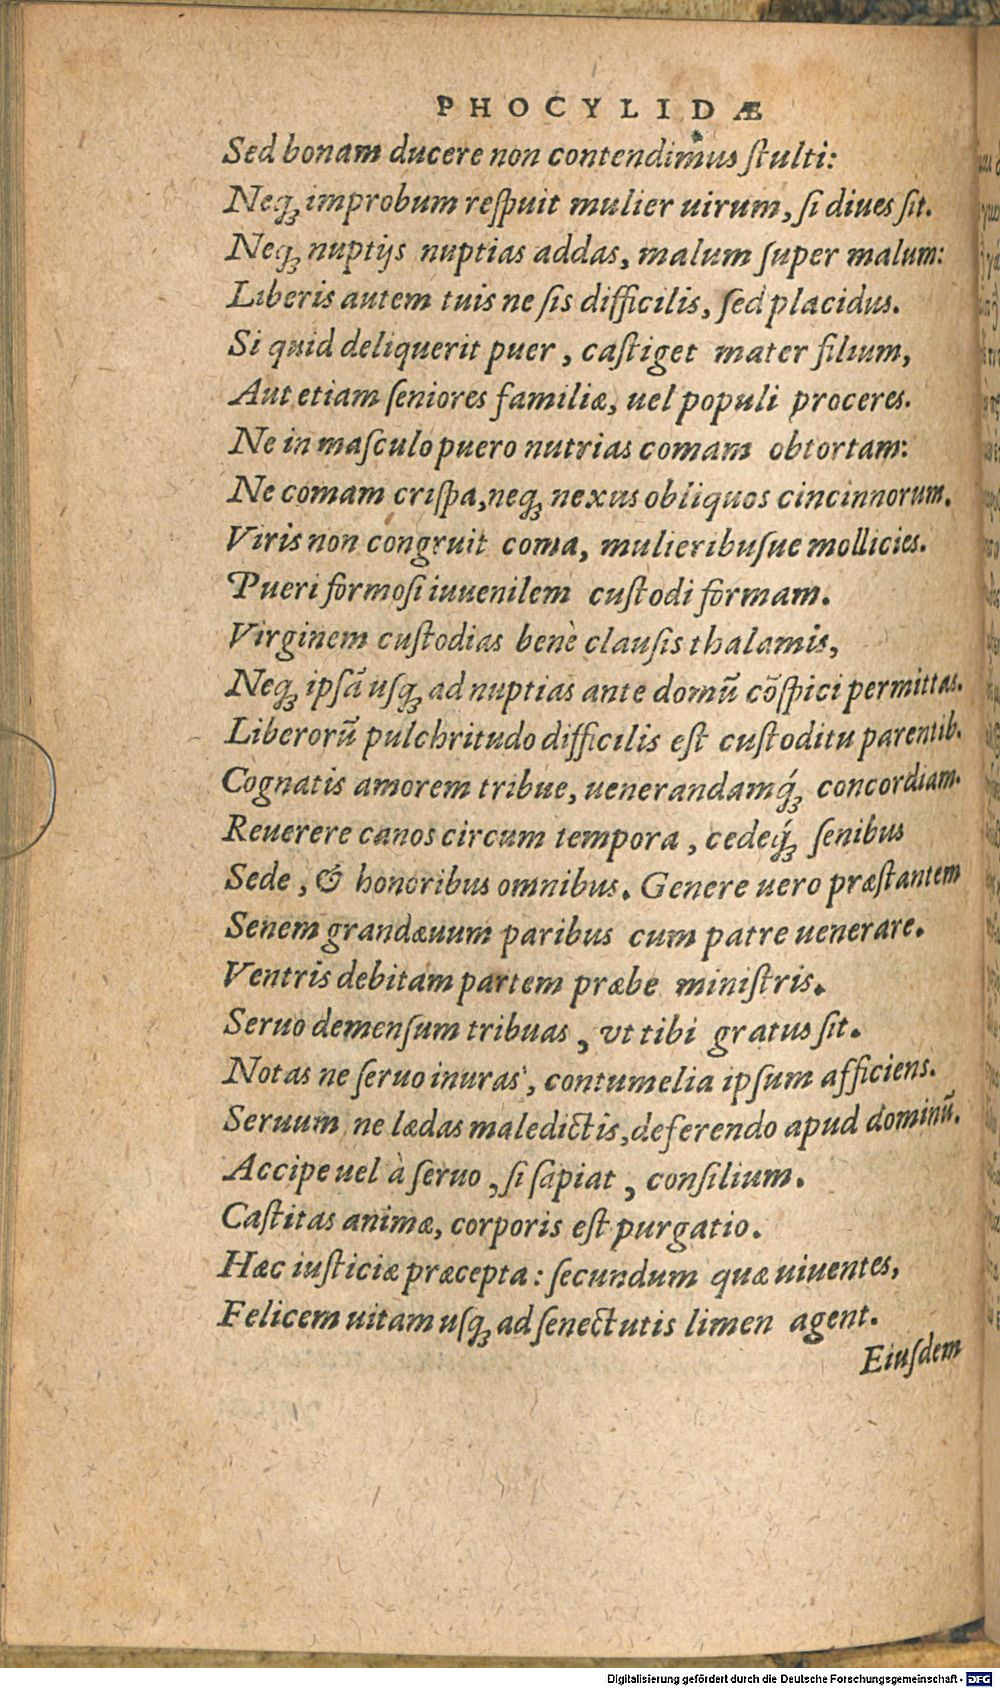 PHOCYLIDÆ
Sed bonam ducere non contendimus ſtulti:
Neqꝫ improbum reſpuit mulier uirum, ſi diues ſit.
Neqꝫ nuptijs nuptias addas, malum ſuper malum:
Liberis autem tuis ne ſis difficilis, ſed placidus.
Si quid deliquerit puer, caſtiget mater filium,
Aut etiam ſeniores familiæ, uel populi proceres.
Ne in maſculo puero nutrias comam obtortam:
Ne comam criſpa, neqꝫ nexus obliquos cincinnorum.
Viris non congruit coma, mulieribuſue mollicies.
Pueri formoſi iuuenilem cuſtodi formam.
Virginem cuſtodias benè clauſis thalamis,
Neqꝫ ipſã uſqꝫ ad nuptias ante domũ cõſpici permittas.
Liberorũ pulchritudo difficilis eſt cuſtoditu parentib.
Cognatis amorem tribue, uenerandamq́ꝫ concordiam.
Reuerere canos circum tempora, cedeq́ꝫ ſenibus
Sede, & honoribus omnibus. Genere uero præſtantem
Senem grandæuum paribus cum patre uenerare.
Ventris debitam partem præbe miniſtris.
Seruo demenſum tribuas, vt tibi gratus ſit.
Notas ne ſeruo inuras, contumelia ipſum afficiens.
Seruum ne lædas maledictis, deferendo apud dominũ.
Accipe uel à ſeruo, ſi ſapiat, conſilium.
Caſtitas animæ, corporis eſt purgatio.
Hæc iuſticiæ præcepta: ſecundum quæ uiuentes,
Felicem uitam uſqꝫ ad ſenectutis limen agent.
Eiuſdem
Digitalisierung gefördert durch die Deutsche Forschungsgemeinschaft - DFG